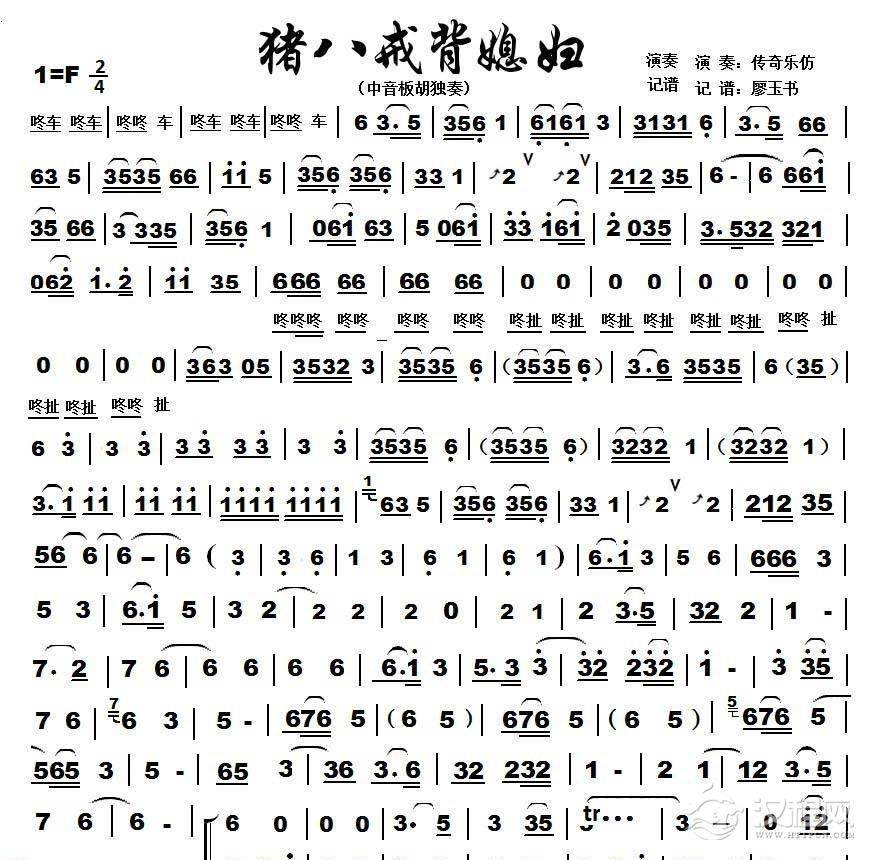 猪八戒背媳妇
1=F 2/4
（中音板胡独奏）
演奏 演 奏：传奇乐仿
记谱 记 谱：廖玉书
咚车 咚车 | 咚咚 车 | 咚车 咚车 | 咚咚 车 | 6 3·5 | 356 1 | 6161 3 | 3131 6 | 3·5 66 |
63 5 | 3535 66 | 11 5 | 356 356 | 33 1 | 2 V 2 V | 212 35 | 6 - | 6 661 |
35 66 | 3 335 | 356 1 | 061 63 | 5 061 | 33 161 | 2 035 | 3·532 321 |
062 1·2 | 11 35 | 666 66 | 66 66 | 0 0 | 0 0 | 0 0 | 0 0 |
咚咚咚 咚咚 咚咚 咚咚 咚扯 咚扯 咚扯 咚扯 咚扯 咚扯 咚咚 扯
0 0 | 0 0 | 363 05 | 3532 3 | 3535 6 | （3535 6） | 3·6 3535 | 6（35） |
咚扯 咚扯 咚咚 扯
6 3 | 3 3 | 3 3 3 3 | 3 3 | 3535 6 | （3535 6） | 3232 1 | （3232 1） |
3·1 11 | 11 11 | 1111 1111 | 1 63 5 | 356 356 | 33 1 | 2 V 2 | 212 35 |
56 6 | 6 - | 6 （3 | 3 6 | 1 3 | 6 1 | 6 1） | 6·1 3 | 5 6 | 666 3 |
5 3 | 6·1 5 | 3 2 | 2 2 | 2 0 | 2 1 | 2 3·5 | 32 2 | 1 - |
7· 2 | 7 6 | 6 6 | 6 6 | 6·1 3 | 5·3 3 | 32 232 | 1 - | 3 35 |
7 6 | 7 6 3 | 5 - | 676 5 | （6 5） | 676 5 | （6 5） | 5 676 5 |
565 3 | 5 - | 65 3 | 36 3·6 | 32 232 | 1 - | 2 1 | 12 3·5 |
7 6 | 6 - | 6 0 | 0 0 | 3· 5 | 3 35 | tr 3 | 3 - | 0 12 |
汉程网